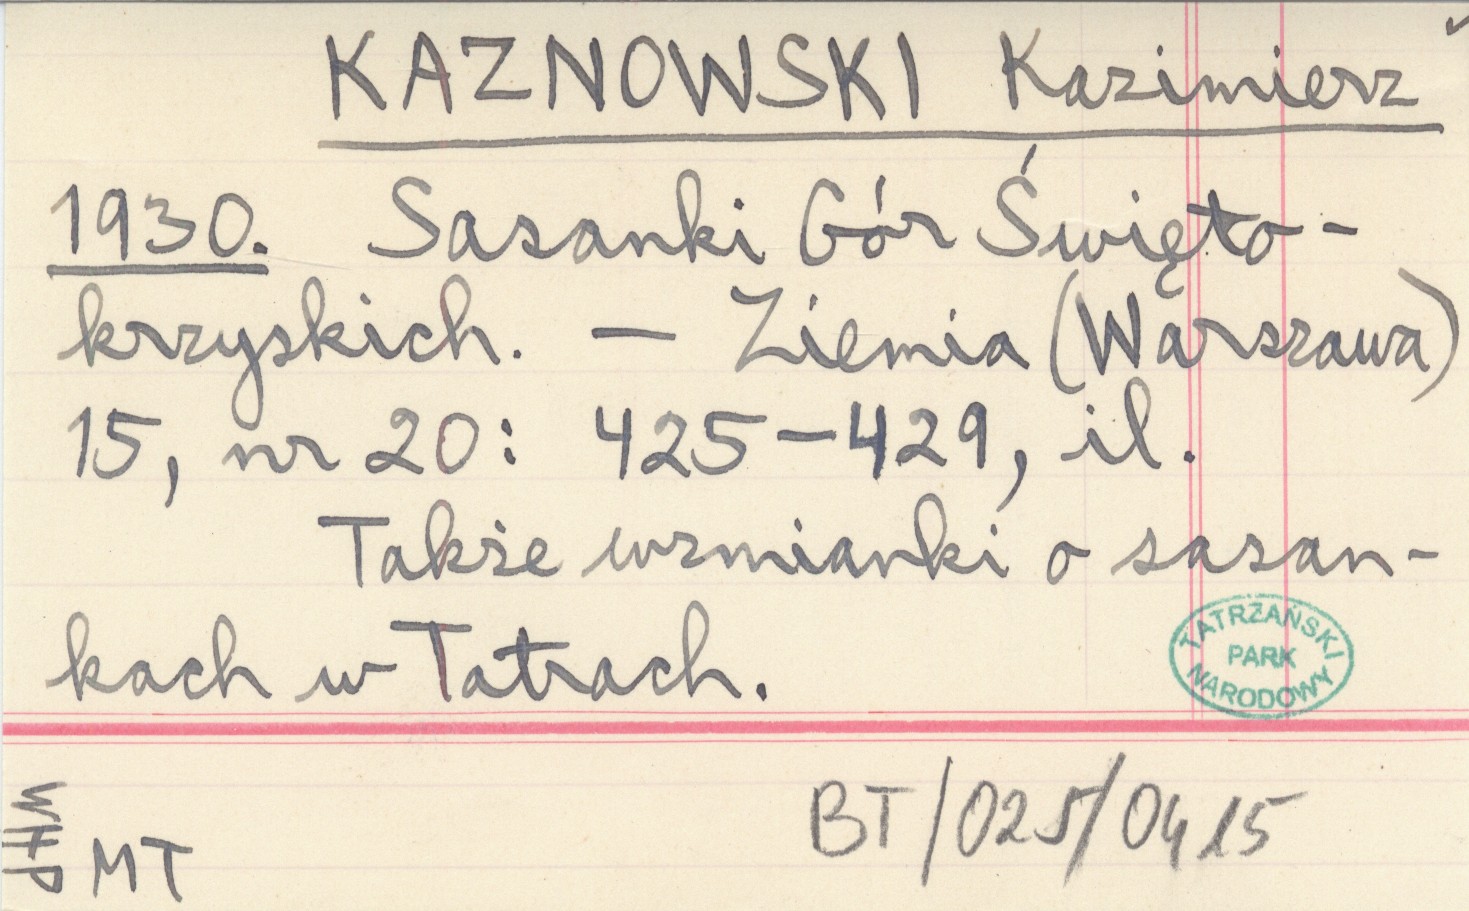 KAZNOWSKI Kazimierz
1930. Sasanki Gór Święto-
krzyskich. — Ziemia (Warszawa)
15, nr 20: 425-429, il.
Także wzmianki o sasan-
kach w Tatrach.
TATRZAŃSKI
PARK
NARODOWY
BT/025/0415
WHP
MT